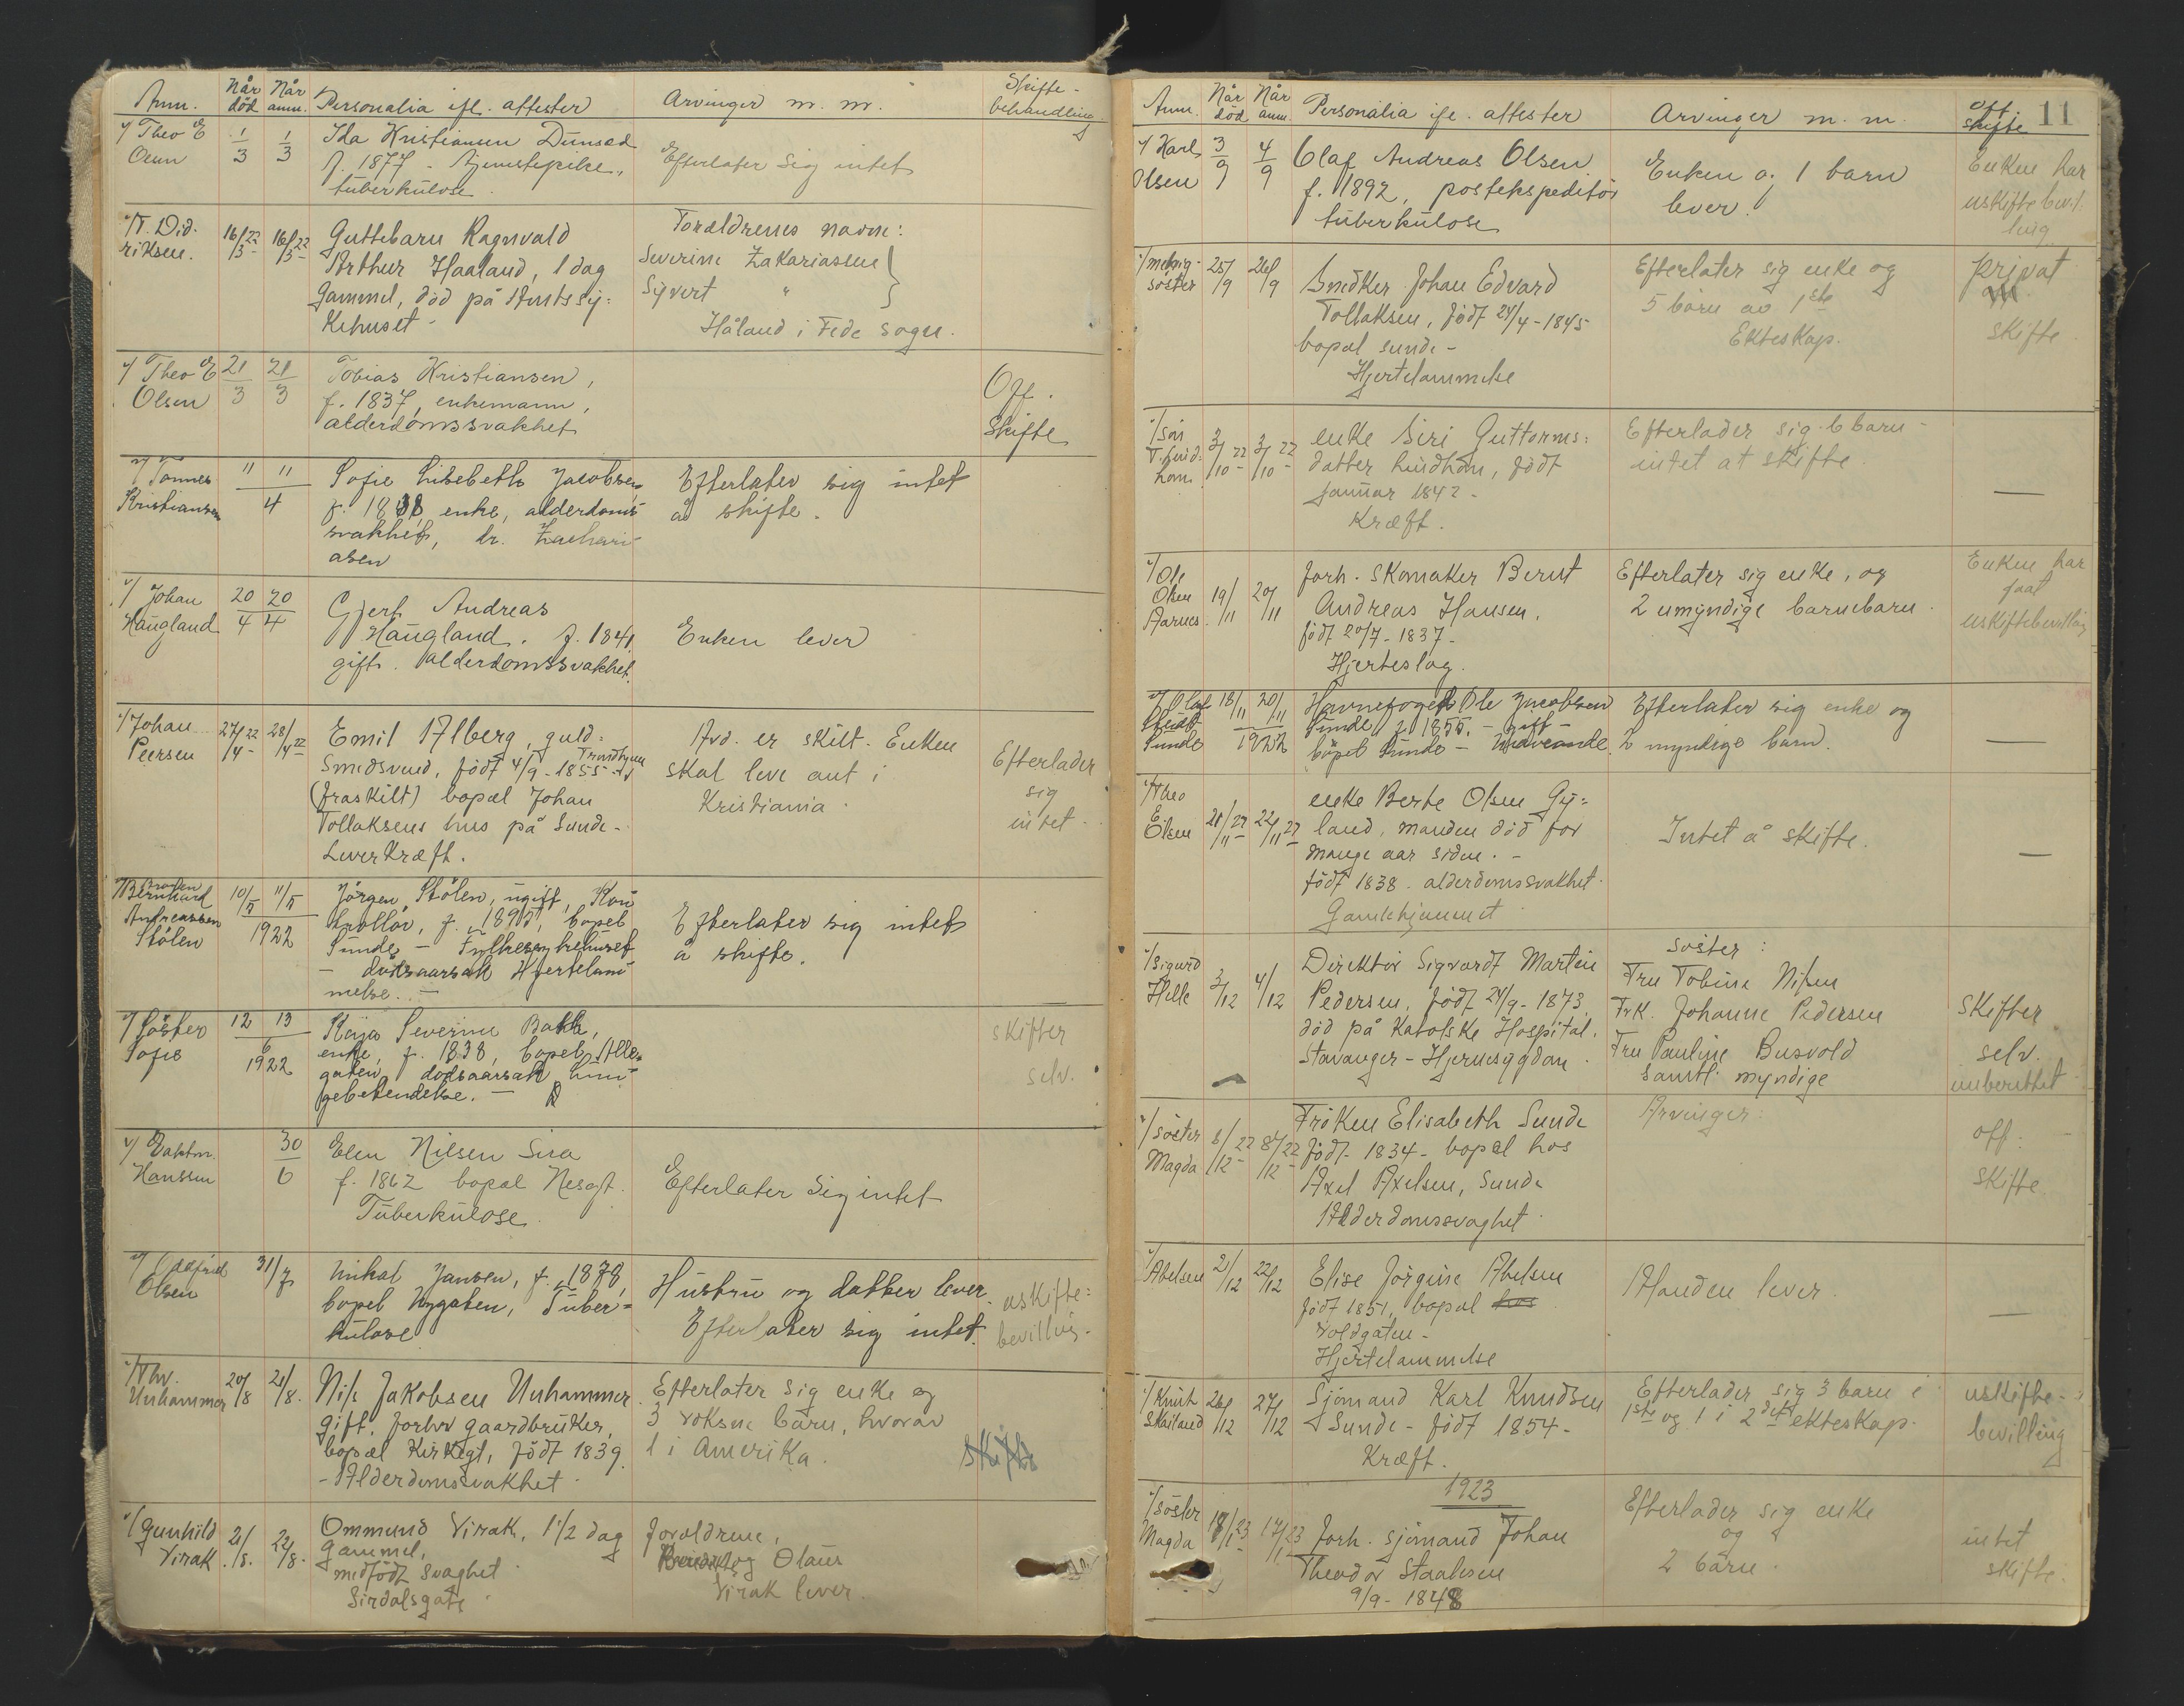 Anm.
Når død
Når anm.
Personalia ifl. attester
Arvinger m. m.
Skifte-
behandling
v/ Theo E
Olsen
1/3
1/3
Ida Kristiansen Dunsæd
f. 1877 - tjenestepike,
tüberkülose
Efterlater Sig intet
v/ T. Did-
riksen.
16/3 22
16/3 22
Guttebarn Ragnvald
Arthur Haaland, 1 dag
gammel, død på Amtssy=
kehuset -
Forældrenes navne:
Severine Zakariassen
Sigvert "
Håland i Fede sogn.
v/ Theo E
Olsen
21/3
21/3
Tobias Kristiansen,
f. 1837, enkemann,
alderdomssvakhet
Off.
Skifte
v/ Tønnes
Kristiansen
11
11
4
Sofie Lisebeth Jacobsen
f. 1838 enke, alderdoms-
svakhet, dr. Zachari-
asen
Efterlater sig intet
å skifte.
v/ Johan
Haugland
20/4
20/4
Gjert Andreas
Haugland. f. 1841
gift. alderdomssvakhet.
Enken lever
v/ Johan
Peersen
27/4 22
28/4 22
Emil Ahlberg, guld=
smedsvend, født 4/9-1855
Trondhjem
(fraskilt) bopæl Johan
Tollaksens hus på Sunde-
Leverkræft.
Avd. er skilt. Enken
skal leve ant i
Kristiania.
Efterlader
sig
intet.
v/ Broren
Bernhard
Andreassen
Stølen
10/5
11/5
1922
Jørgen Stølen, ugift, Kon
trollør, f. 1895, bopel
Sunde - Fylkessykehuset
- dødsaarsak Hjertelam-
melse. -
Efterlater sig intet
å skifte.
v/ Søster
Sofie
12
13
6
1922
Kaja Severine Bakke,
enke, f. 1838, bopel Alle-
gaten, dødsaarsak lun-
gebetendelse. -
skifter
selv.
v/ Vaktm.
Hanssen
30/6
Elen Nilsen Sira
f. 1862 bopæl Nesgt.
Tüberkülose
Efterlater Sig intet
v/ Oddfrid
Olsen
31/7
Mikal Jansen, f. 1878,
bopel Nygaten, Tüber=
külose
Hustru og datter lever.
Efterlater sig intet.
uskifte=
bevilling.
v/ Thv.
Unhammer
20/8
21/8.
Nils Jakobsen Unhammer
gift, forhv gaardbruker,
bopæl Kirkegt, født 1839.
- Alderdomssvakhet
Efterlater sig enke og
3 voksne børn, hvorav
1 i Amerika.
Skifte
v/ Gunhild
Virak
21/8.
22/8.
Ommund Virak, 1 1/2 dag
gammel,
medfødt svaghet
Sirdalsgate
forældrene,
og Olaus
Virak lever.
Anm.
Når død
Når anm.
Personalia ifl. attester
Arvinger m. m.
Off.
skifte
11
v/ Karl
Olsen
3/9
4/9
Olaf Andreas Olsen
f. 1892, postekspeditør
tüberkülose
Enken o. 1 barn
lever.
Enken har
uskiftebevil-
ling
v/ menig-
søster
25/9
26/9
Snedker Johan Edvard
Tollaksen, født 28/4-1845
bopæl Sunde -
Hjertelammelse
Efterlater sig enke og
5 børn av 1ste
Ekteskap.
privat
skifte
v/ søn
T. Lind=
holm
2/10 22
3/10 22
enke Siri Guttorms=
datter Lindholm, født
Januar 1842 -
Kræft.
Efterlader sig 6 barn -
intet at skifte
—
v/ Ole
Olsen
Aarnes.
19/11
20/11
forh. Skomaker Bernt
Andreas Hansen,
født 20/7-1837-
Hjerteslag.
Efterlater sig enke, og
2 umyndige barnebarn.
Enken har
faat
uskiftebevilling
v/ Olaf
Sunde
18/11
20/11
1922
Havnefoged Ole Jacobsen
Sunde f 1855. - gift -
bopel Sunde -
Efterlater sig enke og
2 myndige barn.
—
v/ Theo
E.
Olsen
21/11 22
22/11 22
enke Berte Olsen Gy=
land, manden død for
mange aar siden. -
født 1838. alderdomssvakhet.
Gamlehjemmet
Intet å skifte.
—
v/ Sigurd
Helle
3/12
4/12
Direktør Sigvardt Martin
Pedersen, født 24/9-1873.
død på Katolske Hospital.
Stavanger - Hjernesygdom.
Søster:
Fru Tobine Nilsen
Frk. Johanne Pedersen
Fru Pauline Busvold
samtl. myndige
Skifter
selv.
uuberettet
v/ søster
Magda
8/12 22
8/12 22
Frøken Elisabeth Sunde
født 1834 - bopæl hos
Axel Axelsen, Sunde
Alderdomssvaghet
Arvinger:
off.
Skifte
v/ Abelsen
21/12
22/12
Elise Jørgine Abelsen
født 1851, bopæl hos
Voldgaten -
Hjertelammelse
Manden lever.
—
v/ Knut
Skailand
26/12
27/12
Sjømand Karl Knudsen
Sunde - født 1854 -
Kræft.
Efterlader sig 3 barn i
1ste og 1 i 2det ekteskap.
uskifte-
bevilling
1923
v/ søster
Magda
17/1 23
17/1 23
Forh. sjømand Johan
Theodor Staalesen
9/9-1848
Efterlader sig enke
og
2 barn
intet
skifte.